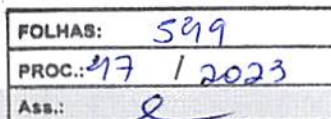 FOLHAS: 549
PROC.: 47 / 2023
Ass.: